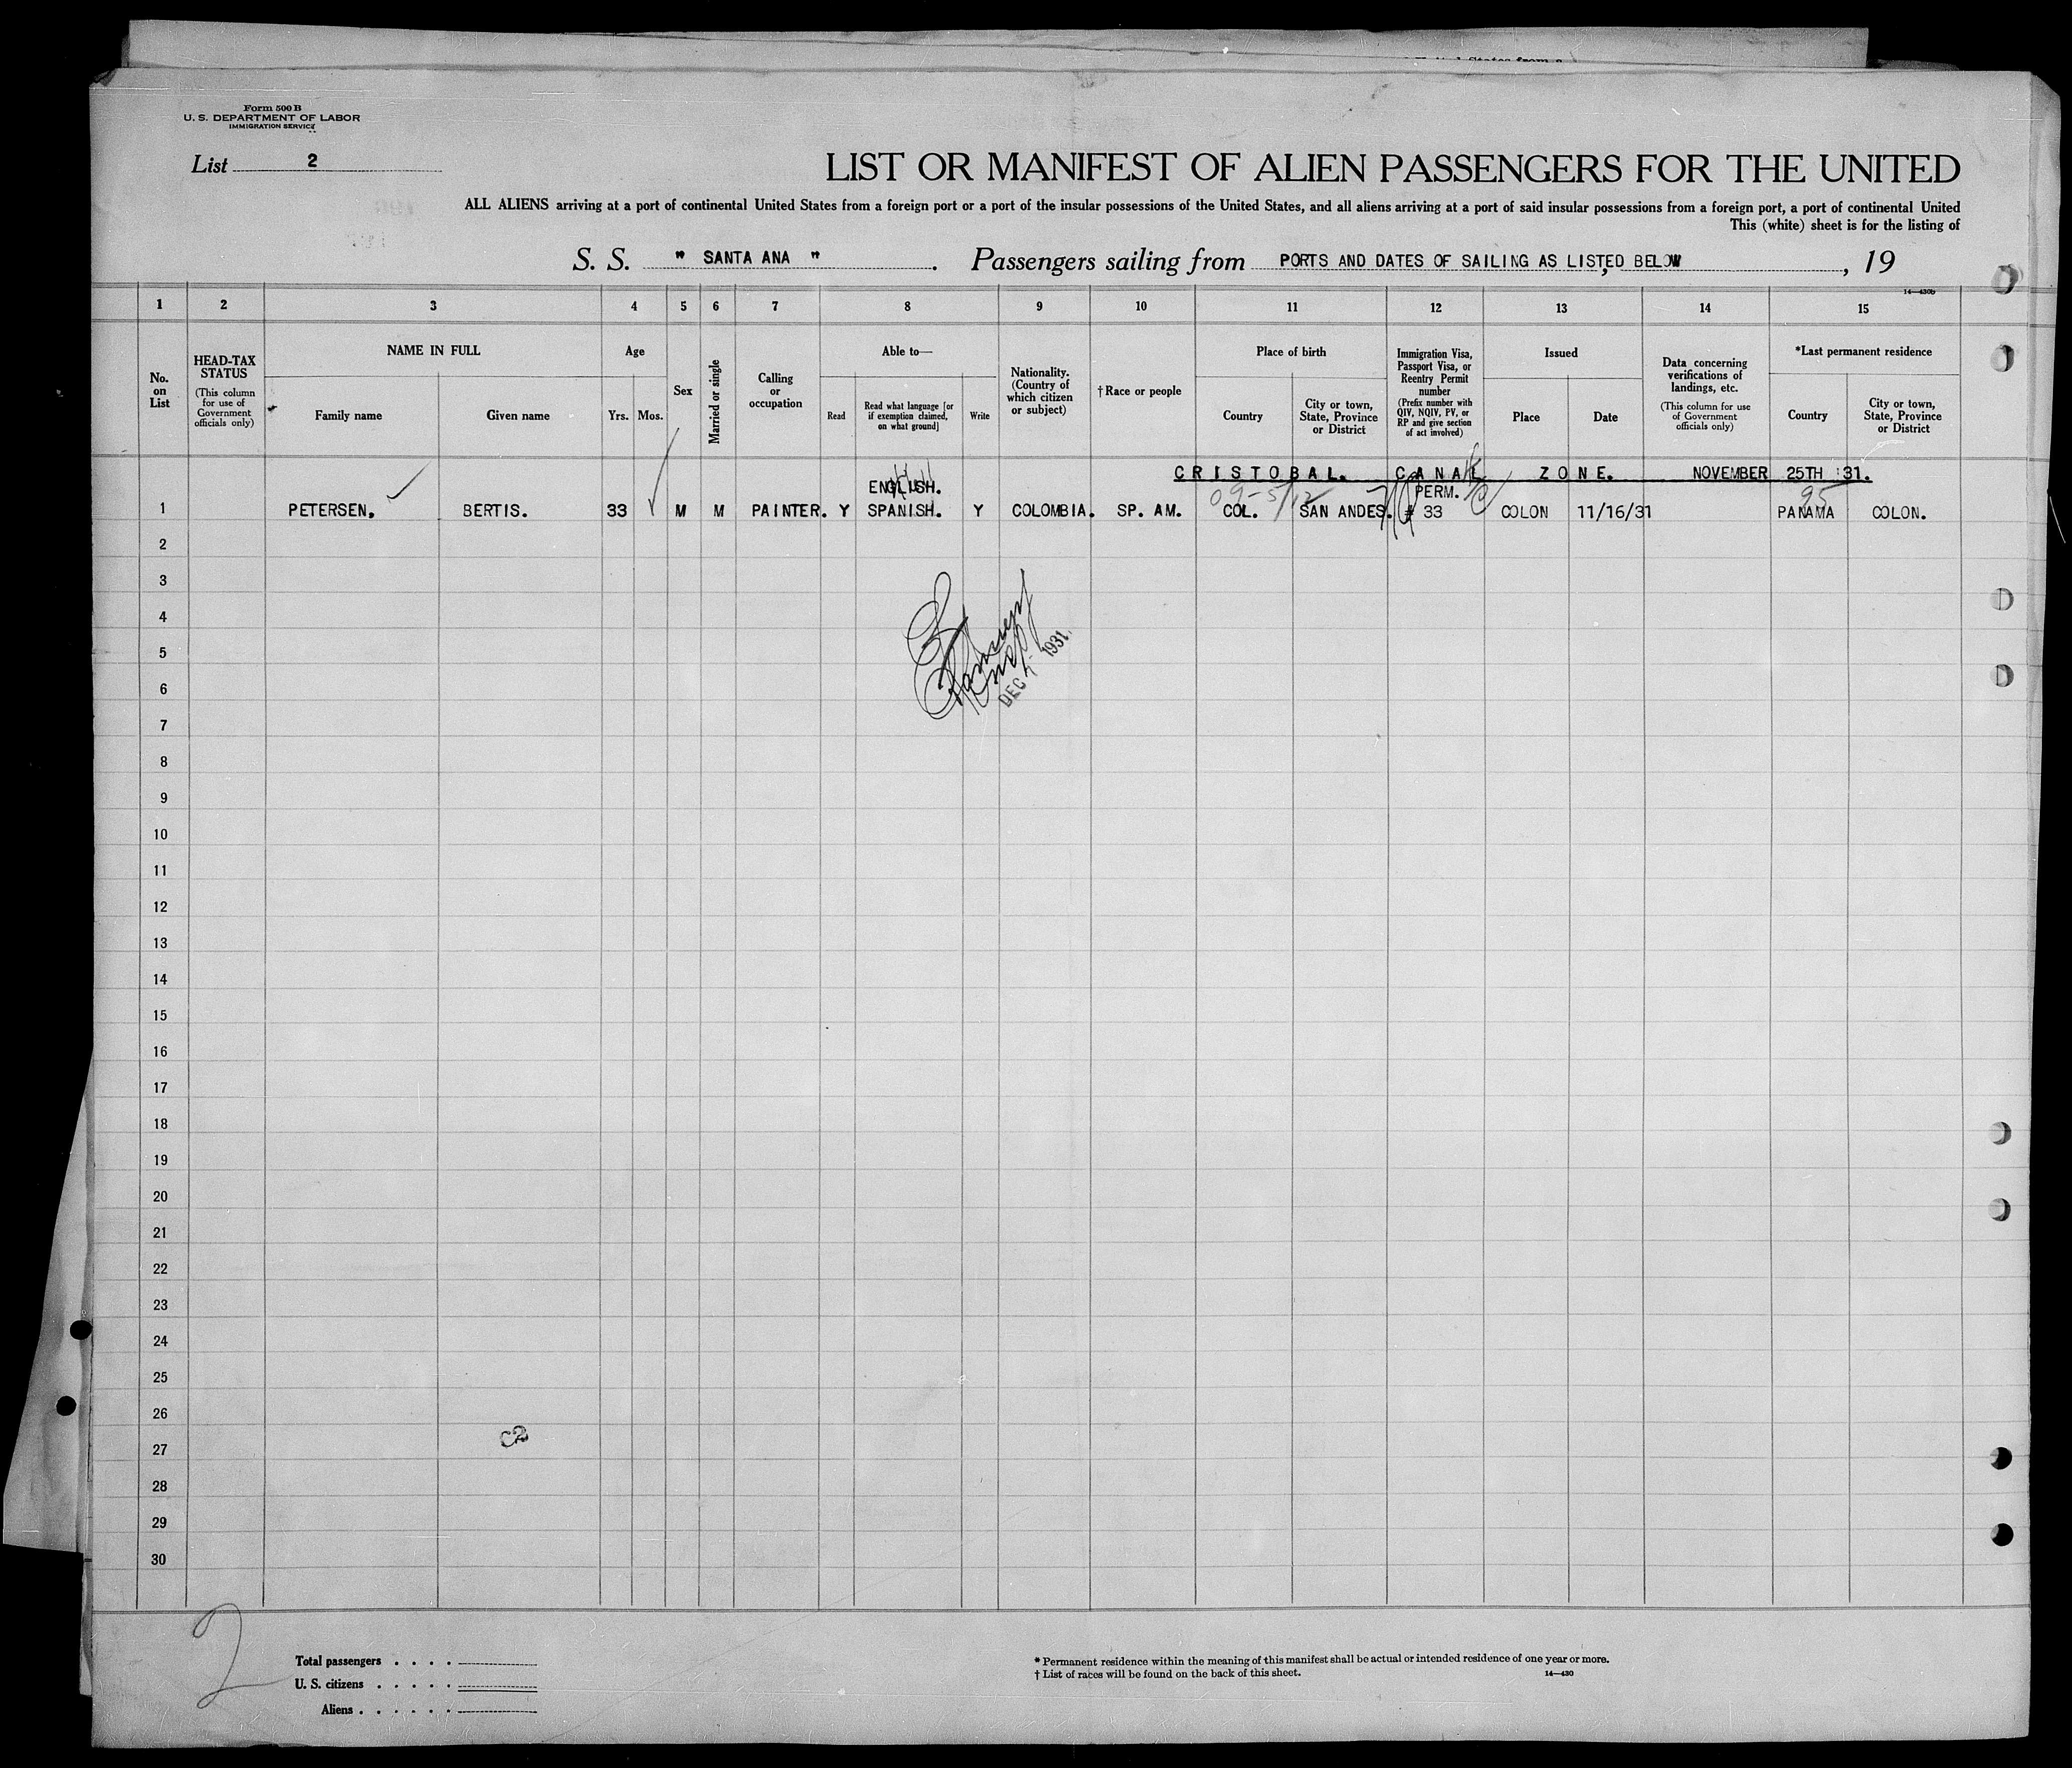 Form 500 B
U. S. DEPARTMENT OF LABOR
IMMIGRATION SERVICE
List 2
LIST OR MANIFEST OF ALIEN PASSENGERS FOR THE UNITED
ALL ALIENS arriving at a port of continental United States from a foreign port or a port of the insular possessions of the United States, and all aliens arriving at a port of said insular possessions from a foreign port, a port of continental United
This (white) sheet is for the listing of
S. S. " SANTA ANA " . Passengers sailing from PORTS AND DATES OF SAILING AS LISTED BELOW , 19
14—430b
1 2 3 4 5 6 7 8 9 10 11 12 13 14 15
No. on List
HEAD-TAX STATUS
(This column for use of Government officials only)
NAME IN FULL
Family name
Given name
Age
Yrs.
Mos.
Sex
Married or single
Calling or occupation
Able to—
Read
Read what language [or if exemption claimed, on what ground]
Write
Nationality. (Country of which citizen or subject)
†Race or people
Place of birth
Country
City or town, State, Province or District
Immigration Visa, Passport Visa, or Reentry Permit number
(Prefix number with QIV, NQIV, PV, or RP and give section of act involved)
Issued
Place
Date
Data concerning verifications of landings, etc.
(This column for use of Government officials only)
*Last permanent residence
Country
City or town, State, Province or District
CRISTOBAL. CANAL ZONE. NOVEMBER 25TH 31.
ENGLISH. PERM. 95
1 PETERSEN. BERTIS. 33 M M PAINTER. Y SPANISH. Y COLOMBIA. SP. AM. COL. SAN ANDES. # 33 COLON 11/16/31 PANAMA COLON.
2
3
4
5
DEC 1931
6
7
8
9
10
11
12
13
14
15
16
17
18
19
20
21
22
23
24
25
26
27
28
29
30
2
Total passengers . . . .
U. S. citizens . . . . .
Aliens . . . . . .
* Permanent residence within the meaning of this manifest shall be actual or intended residence of one year or more.
† List of races will be found on the back of this sheet. 14—430